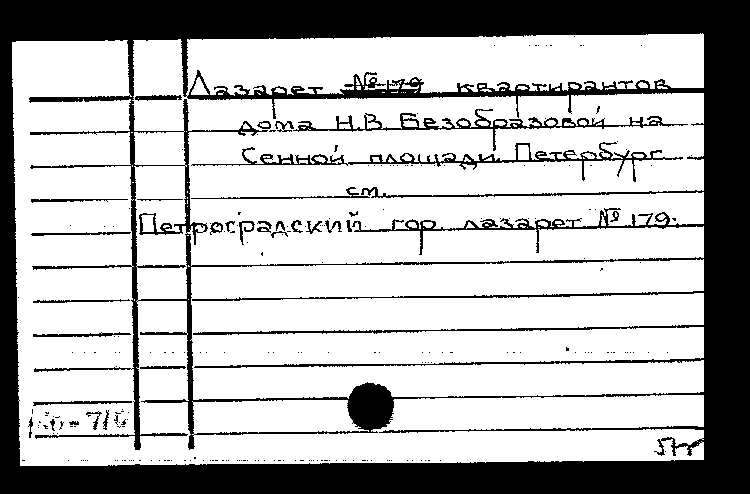 Лазарет №179 квартирантов
дома Н.В. Безобразовой на
Сенной площади. Петербург
см.
Петроградский гор. лазарет №179.